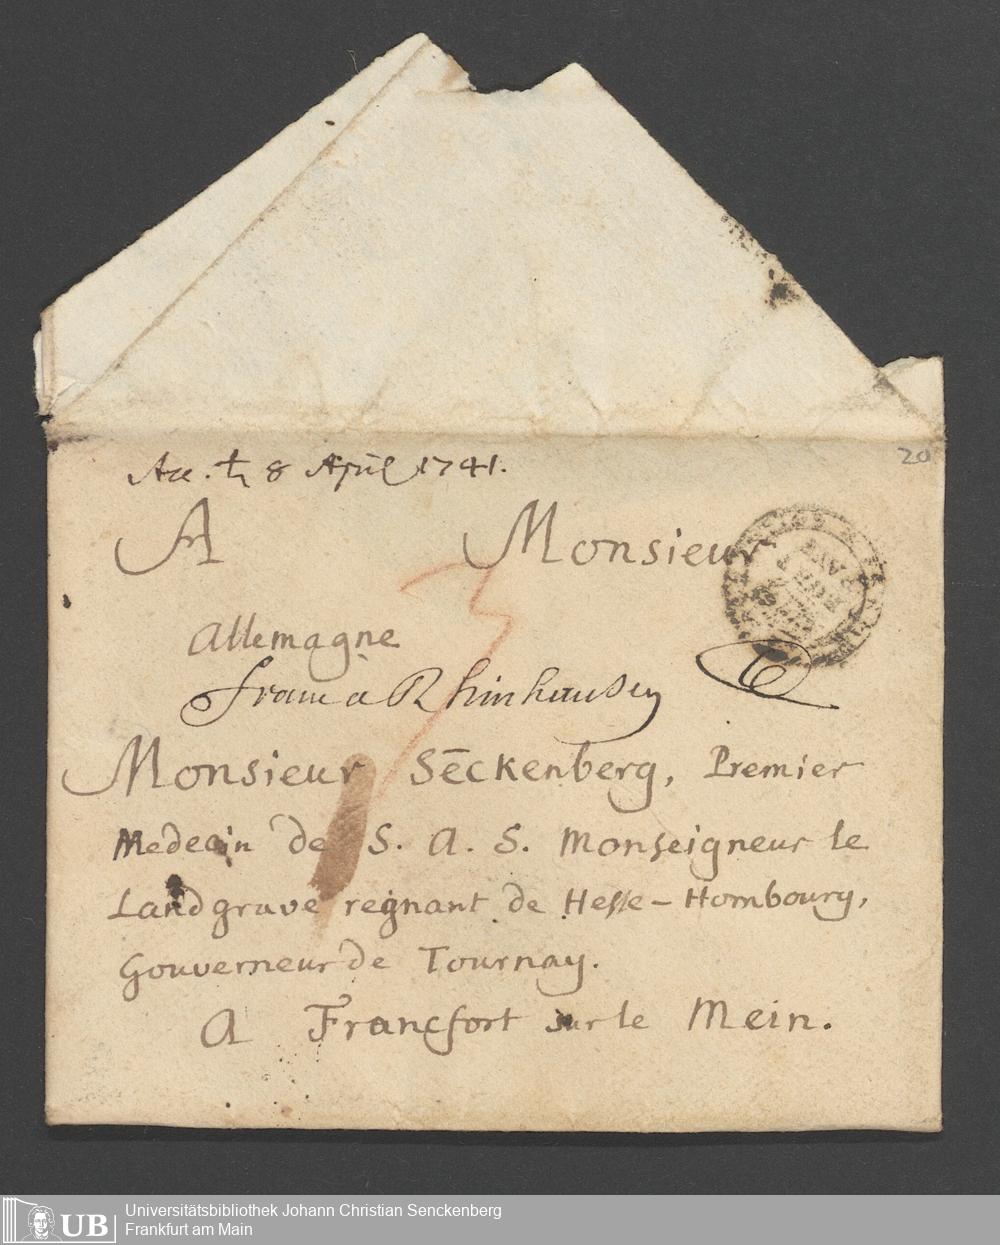 Acc. ♄ 8 April 1741.
20
A Monsieur
Allemagne
franc a Rhinhausen
Monsieur Sēckenberg, Premier
Medecin de S. A. S. Monseigneur le
Landgrave regnant de Hesse-Hombourg,
Gouverneur de Tournay.
A Francfort sur le Mein.
UB
Universitätsbibliothek Johann Christian Senckenberg
Frankfurt am Main